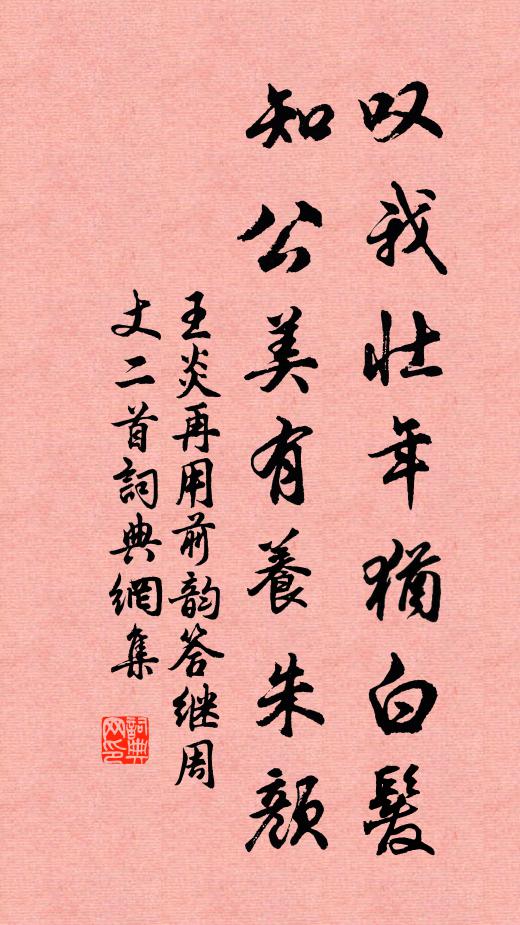 叹我壮年犹白髮
知公美有養朱颜
王炎再用前韵答继周
丈二首詞典網集
詞典网印